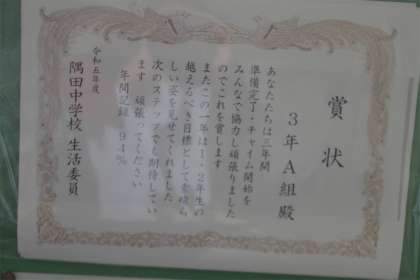 賞状
3年A組殿
あなたたちは三年間
準備完了・チャイム開始を
みんなで協力し頑張りました
のでこれを賞します
またこの一年は1・2年生の
越えるべき目標として
しい姿を見せてくれました
次のステップでも期待してい
ます 頑張ってください
年間記録 94%
令和五年度
隅田中学校 生活委員